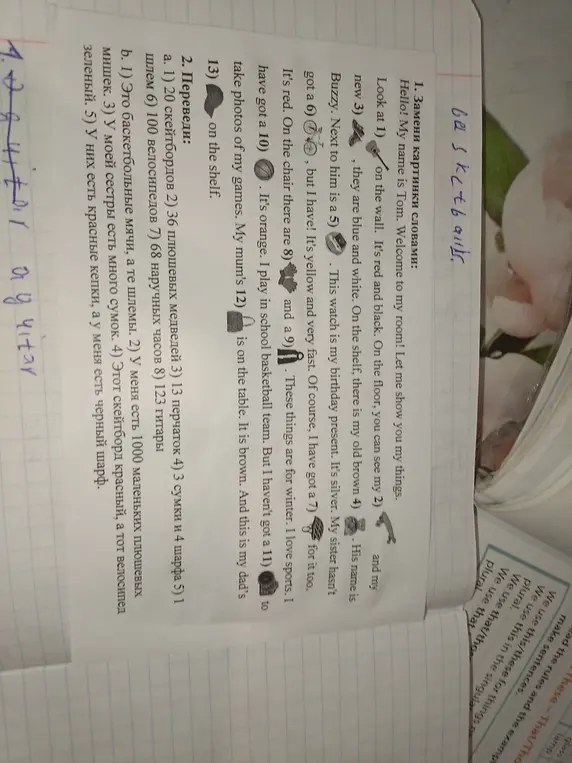 basketballs
1. Замени картинки словами:
Hello! My name is Tom. Welcome to my room! Let me show you my things.
Look at 1) on the wall. It's red and black. On the floor, you can see my 2) and my
new 3) , they are blue and white. On the shelf, there is my old brown 4) . His name is
Buzzy. Next to him is a 5) . This watch is my birthday present. It's silver. My sister hasn't
got a 6) , but I have! It's yellow and very fast. Of course, I have got a 7) for it too.
It's red. On the chair there are 8) and a 9) . These things are for winter. I love sports. I
have got a 10) . It's orange. I play in school basketball team. But I haven't got a 11) to
take photos of my games. My mum's 12) is on the table. It is brown. And this is my dad's
13) on the shelf.
2. Переведи:
a. 1) 20 скейтбордов 2) 36 плюшевых медведей 3) 13 перчаток 4) 3 сумки и 4 шарфа 5) 1
шлем 6) 100 велосипедов 7) 68 наручных часов 8) 123 гитары
b. 1) Это баскетбольные мячи, а те шлемы. 2) У меня есть 1000 маленьких плюшевых
мишек. 3) У моей сестры есть много сумок. 4) Этот скейтборд красный, а тот велосипед
зеленый. 5) У них есть красные кепки, а у меня есть черный шарф.
1. a guitar
These – That/Tho
ead the rules and the examp
make sentences.
We use this/these for things
We use this in the singular
plural.
We use that/tho
plural.